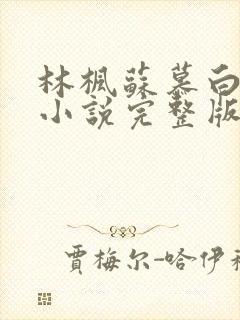 林楓蘇慕白
小說完整版
賈梅尔-哈伊